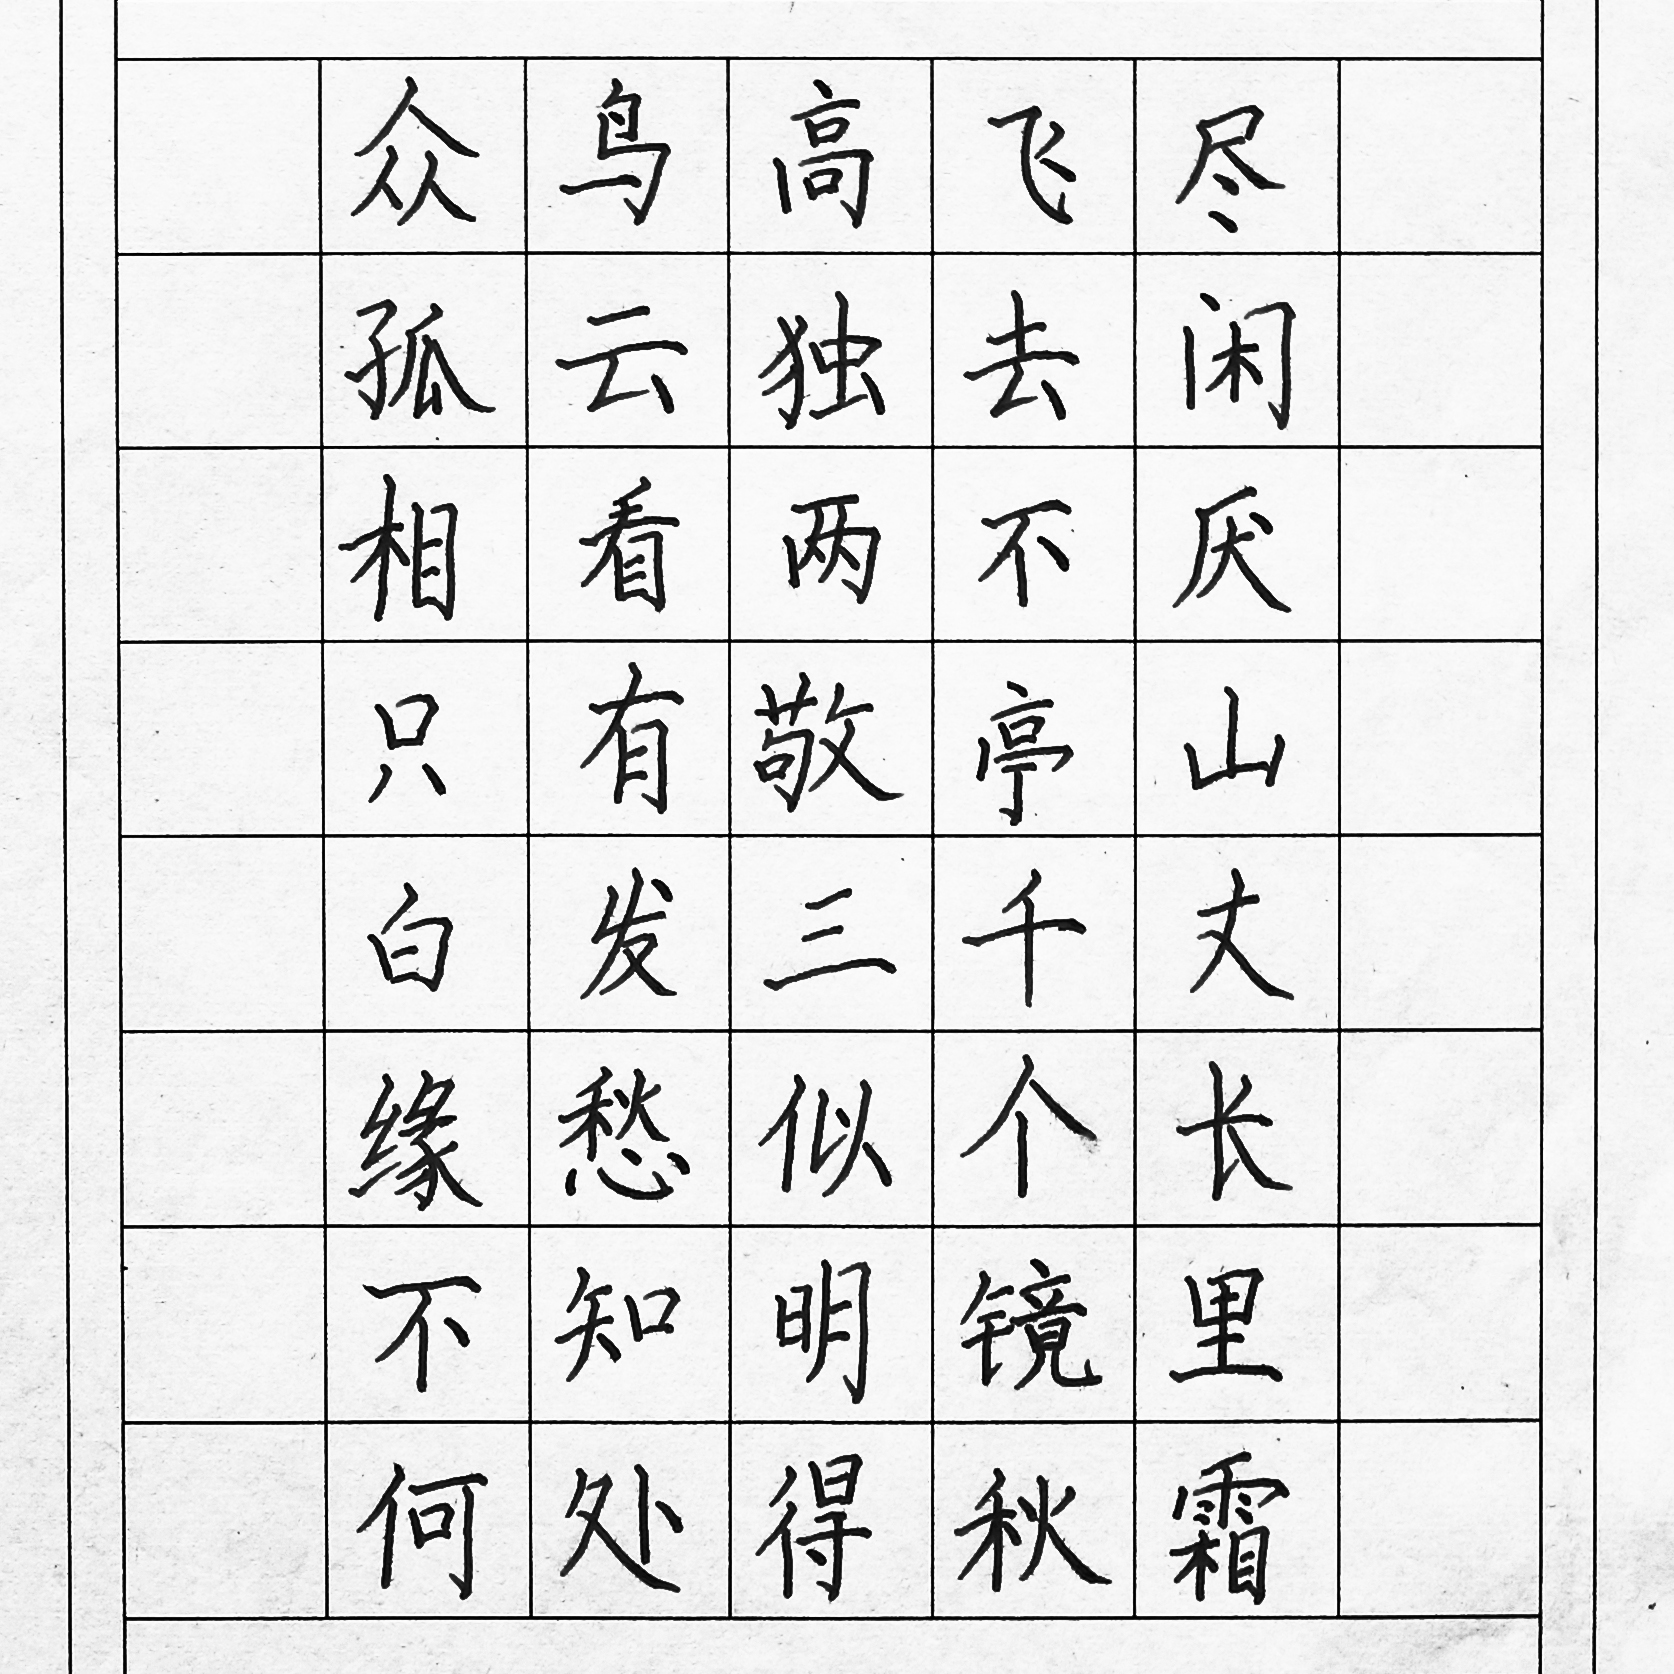 众鸟高飞尽
孤云独去闲
相看两不厌
只有敬亭山
白发三千丈
缘愁似个长
不知明镜里
何处得秋霜